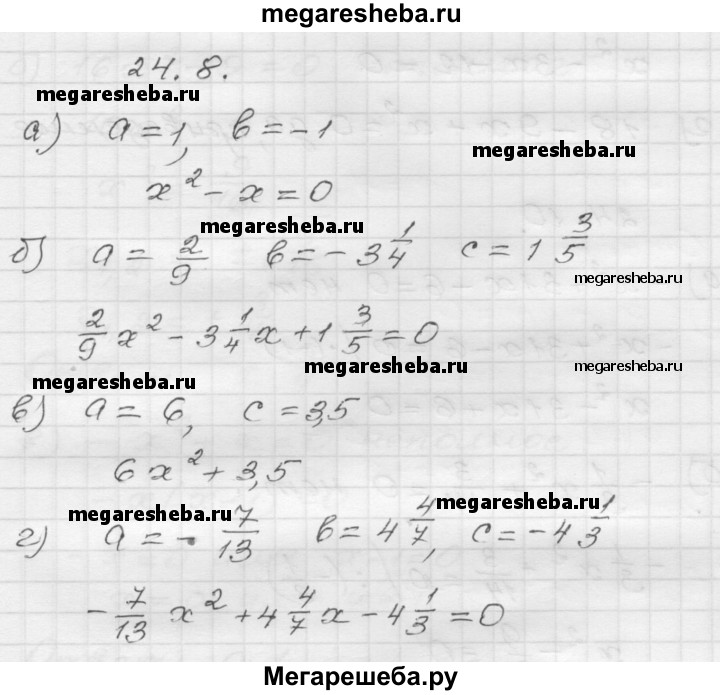 megaresheba.ru
24.8.
megaresheba.ru
а) a = 1, b = -1
megaresheba.ru
x² - x = 0
megaresheba.ru
б) a = 2/9 b = -3 1/4 c = 1 3/5
megaresheba.ru
2/9 x² - 3 1/4 x + 1 3/5 = 0
megaresheba.ru megaresheba.ru
megaresheba.ru
в) a = 6, c = 3,5
6x² + 3,5
megaresheba.ru megaresheba.ru
г) a = - 7/13 b = 4 4/7, c = -4 1/3
megaresheba.ru
- 7/13 x² + 4 4/7 x - 4 1/3 = 0
Мегарешеба.ру